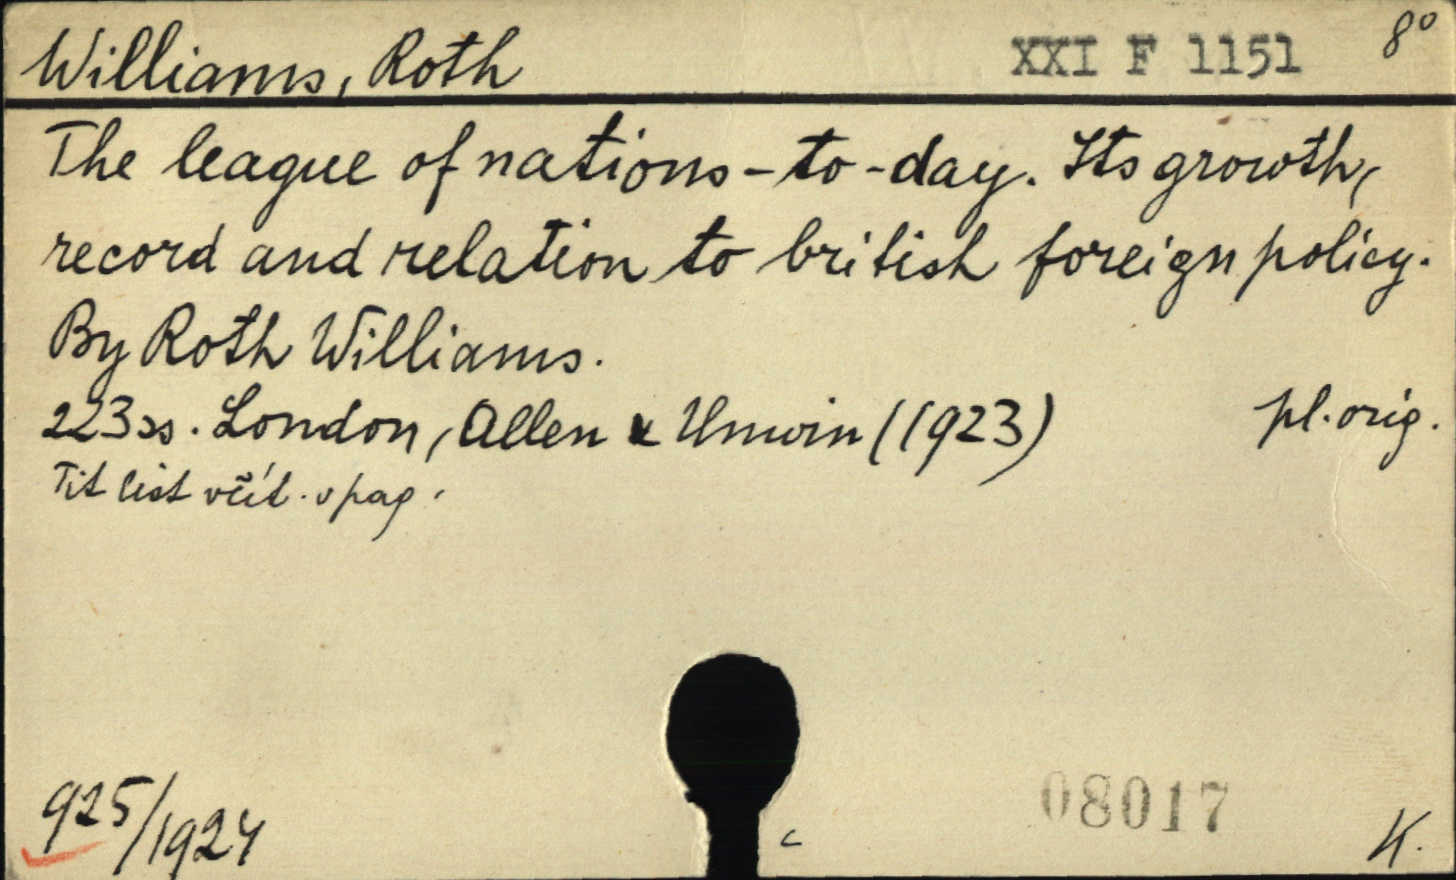 Williams, Roth XXI F 1151 8°
The league of nations-to-day. Its growth,
record and relation to british foreign policy.
By Roth Williams.
223 ss. London, Allen & Unwin (1923) pl. orig.
Tit list včít. v pag.
925/1924
08017
K.